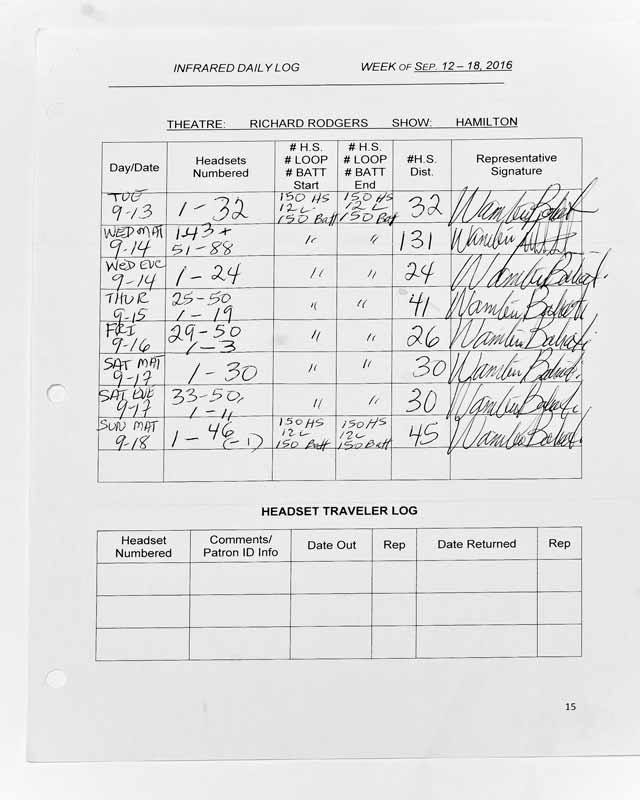 INFRARED DAILY LOG WEEK OF SEP. 12 – 18, 2016
THEATRE: RICHARD RODGERS SHOW: HAMILTON
Day/Date Headsets Numbered # H.S. # LOOP # BATT Start # H.S. # LOOP # BATT End #H.S. Dist. Representative Signature
TUE 9-13 1-32 150 HS 12 L 150 Batt 150 HS 12 L 150 Batt 32
WED MAT 9-14 1-43+ 51-88 " " 131
WED EVE 9-14 1-24 " " 24
THUR 9-15 25-50 1-19 " " 41
FRI 9-16 29-50 1-3 " " 26
SAT MAT 9-17 1-30 " " 30
SAT EVE 9-17 33-50, 1-11 " " 30
SUN MAT 9-18 1-46 (-1) 150 HS 12 L 150 Batt 150 HS 12 L 150 Batt 45
HEADSET TRAVELER LOG
Headset Numbered Comments/ Patron ID Info Date Out Rep Date Returned Rep
15